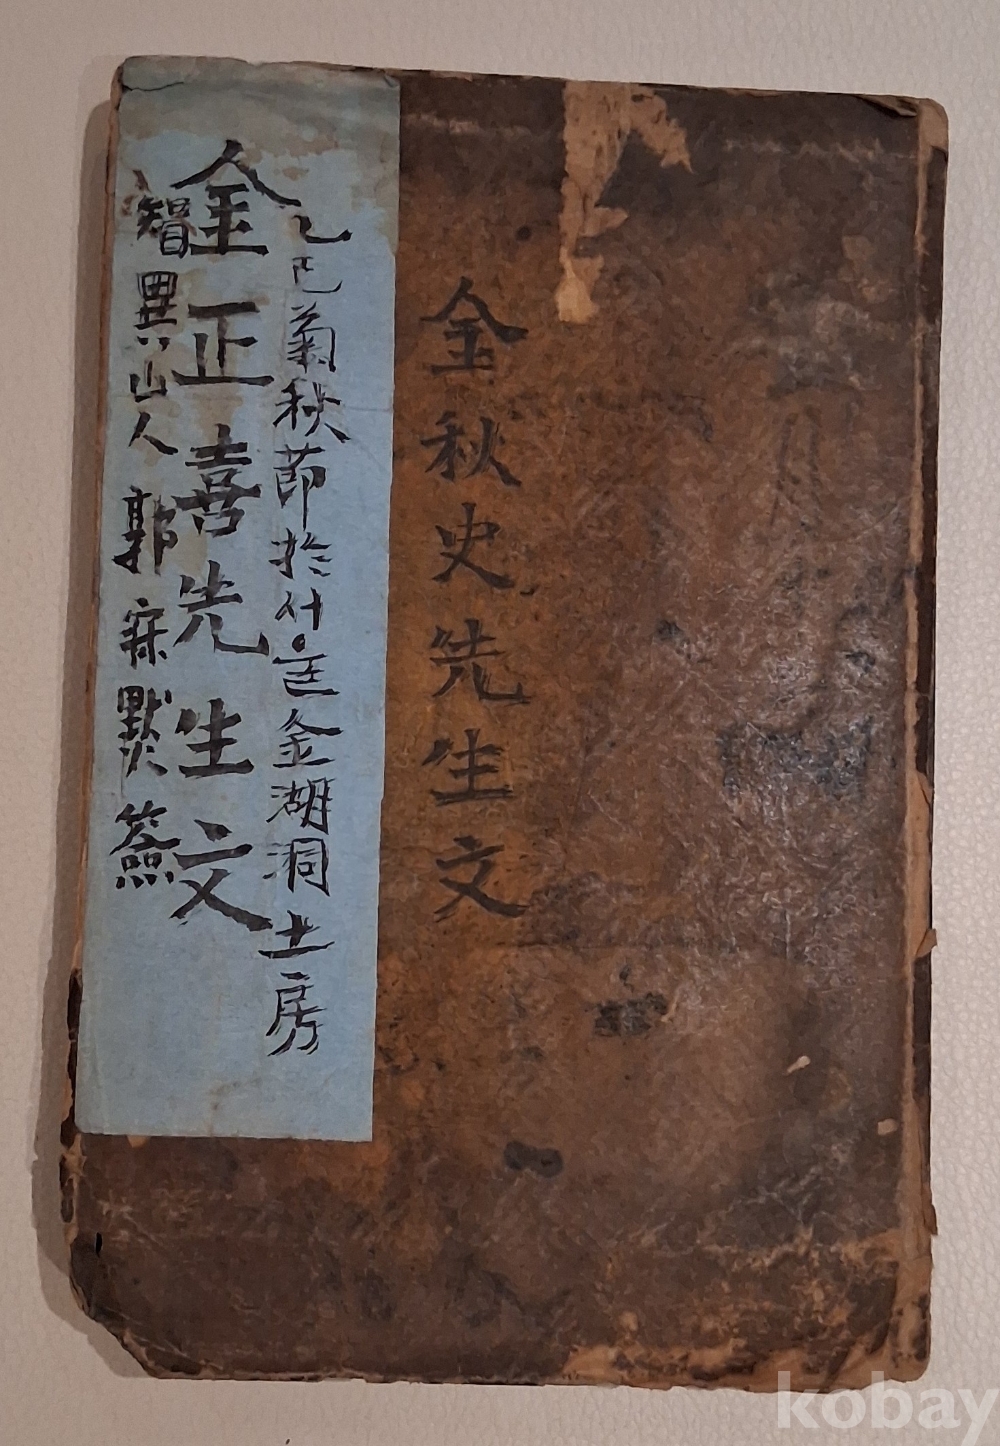 金秋史先生文
乙巳菊秋節於서울金湖洞土房
金正喜先生文
智異山人郭寐默簽
kobay